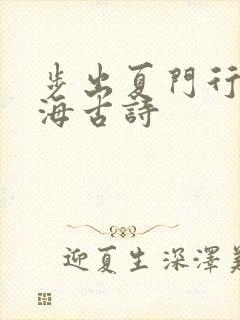 步出夏門行
海古詩
迎夏生深澤